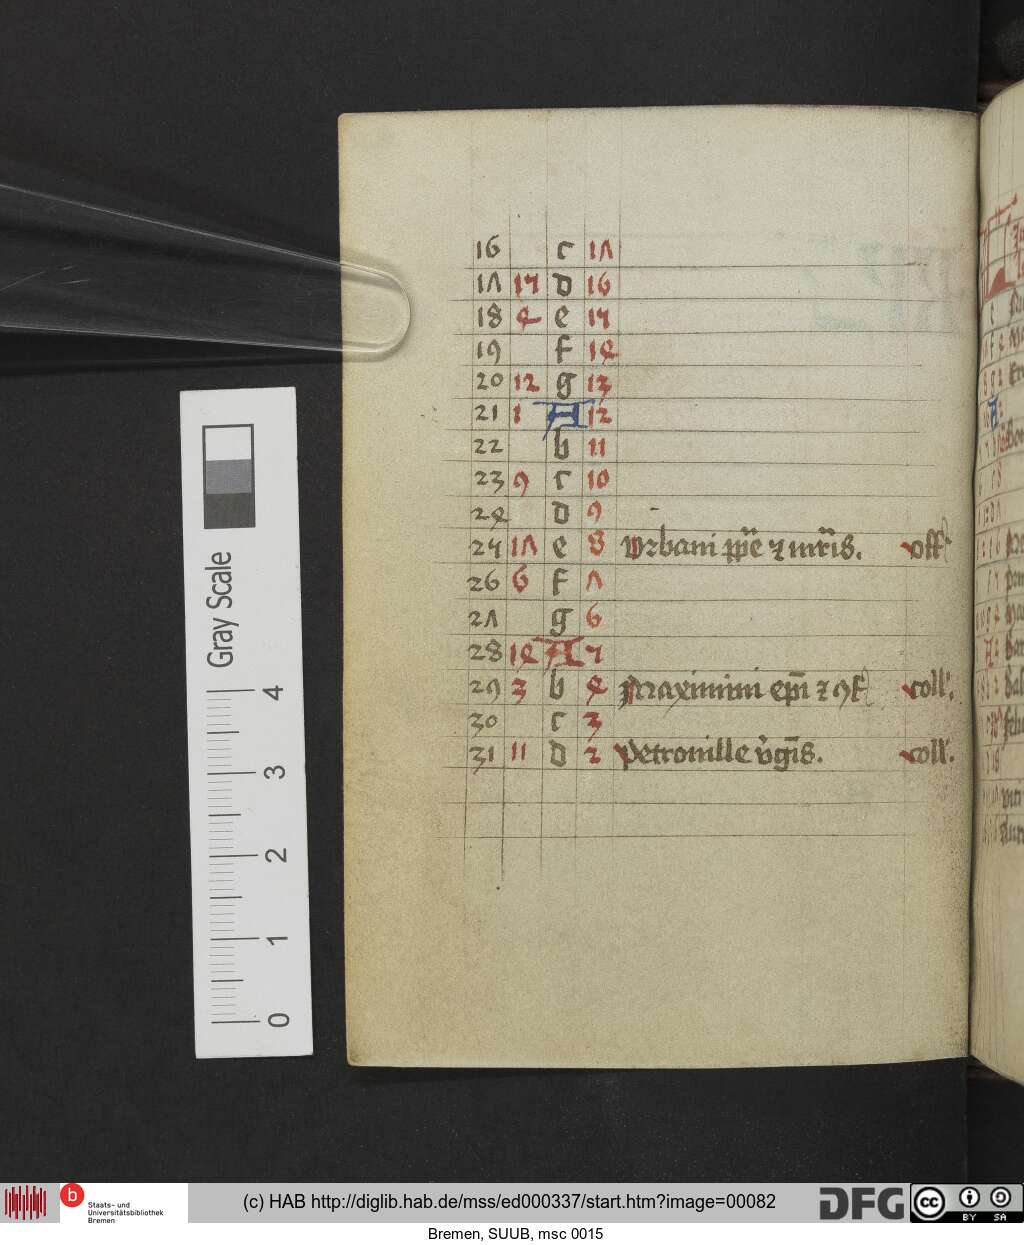 16 c 17
17 15 d 16
18 4 e 15
19 f 14
20 12 g 13
21 1 A 12
22 b 11
23 9 c 10
24 d 9
25 17 e 8 Vrbani pp̄e ⁊ mr̄is. off
26 6 f 7
27 g 6
28 14 A 5
29 3 b 4 Maximini ep̄i ⁊ ꝯf coll'.
30 c 3
31 11 d 2 Petronille v̓gīs. coll'.
Gray Scale
4
3
2
1
0
b
Staats- und
Universitätsbibliothek
Bremen
(c) HAB http://diglib.hab.de/mss/ed000337/start.htm?image=00082
DFG
cc BY SA
Bremen, SUUB, msc 0015